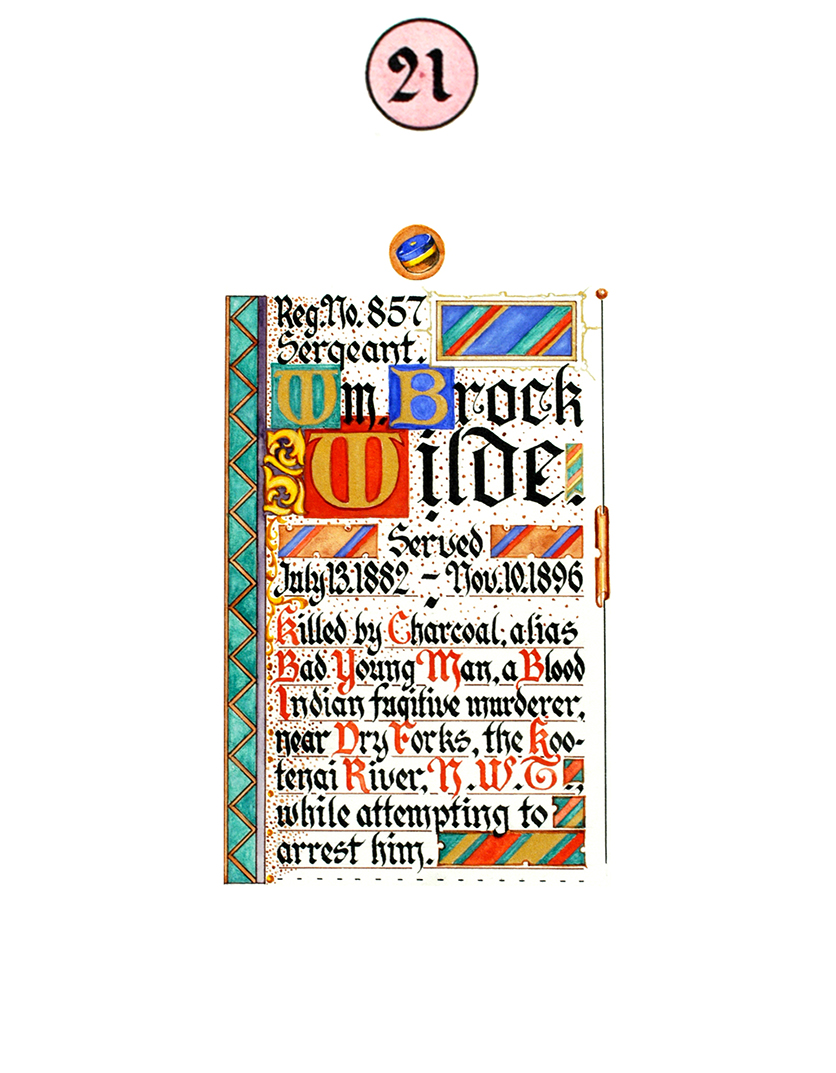 21
Reg. No. 857
Sergeant.
Wm. Brock
Wilde.
Served
July 13. 1882 - Nov. 10. 1896
Killed by Charcoal, alias
Bad Young Man, a Blood
Indian fugitive murderer,
near Dry Forks, the Koo-
tenai River, N.W.T.,
while attempting to
arrest him.